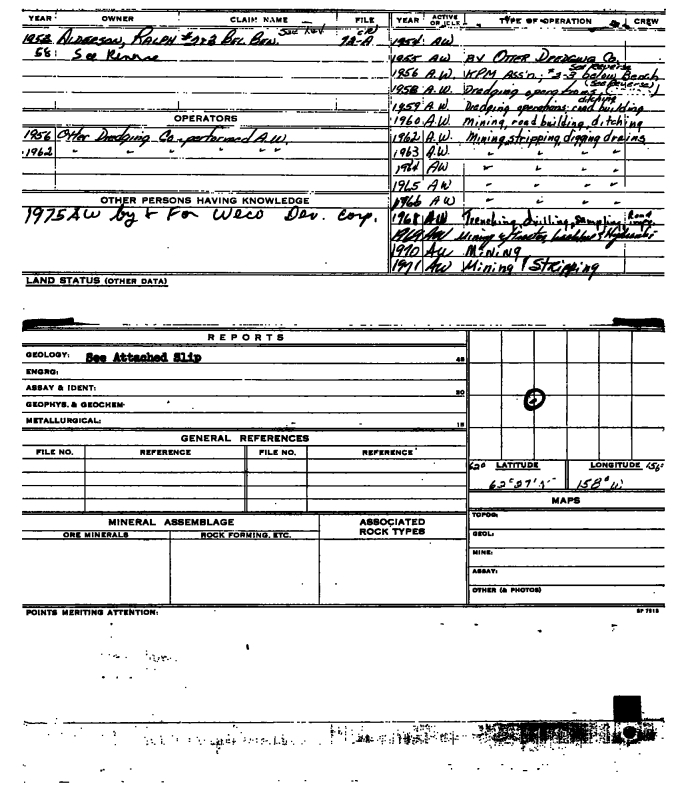 YEAR OWNER CLAIM NAME FILE
1958 ALDERSON, RALPH #2&3 BEL. BON. See Rev 72-A
58: See Reverse
OPERATORS
1956 Otter Dredging Co. performed A.W.
1962 " " " " "
OTHER PERSONS HAVING KNOWLEDGE
1975 AW by & For Weco Dev. Corp.
LAND STATUS (OTHER DATA)
YEAR ACTIVE OR IDLE TYPE OF OPERATION CREW
1954 AW
1955 AW BY OTTER DREDGING Co.
See Reverse
1956 A.W. KPM Ass'n; #3-3 below Bench
1958 A.W. Dredging operations (See Reverse)
1959 A.W. Dredging operations; ditching road building
1960 A.W. Mining, road building, ditching
1962 A.W. Mining, stripping, digging drains
1963 A.W. " " "
1964 AW " " "
1965 AW " " "
1966 AW " " "
1968 AW Trenching, drilling, sampling, Road
1969 AW Mining w/tractor, backhoe & Hydraulic
1970 AW MINING
1971 AW Mining & Stripping
REPORTS
GEOLOGY: See Attached Slip 45
ENGRG:
ASSAY & IDENT: 20
GEOPHYS. & GEOCHEM-
METALLURGICAL: 15
GENERAL REFERENCES
FILE NO. REFERENCE FILE NO. REFERENCE
MINERAL ASSEMBLAGE
ORE MINERALS ROCK FORMING, ETC.
ASSOCIATED ROCK TYPES
62° LATITUDE LONGITUDE 156°
62°27' 158°
MAPS
TOPOG:
GEOL:
MINE:
ASSAY:
OTHER (& PHOTOS)
POINTS MERITING ATTENTION: SP 7513